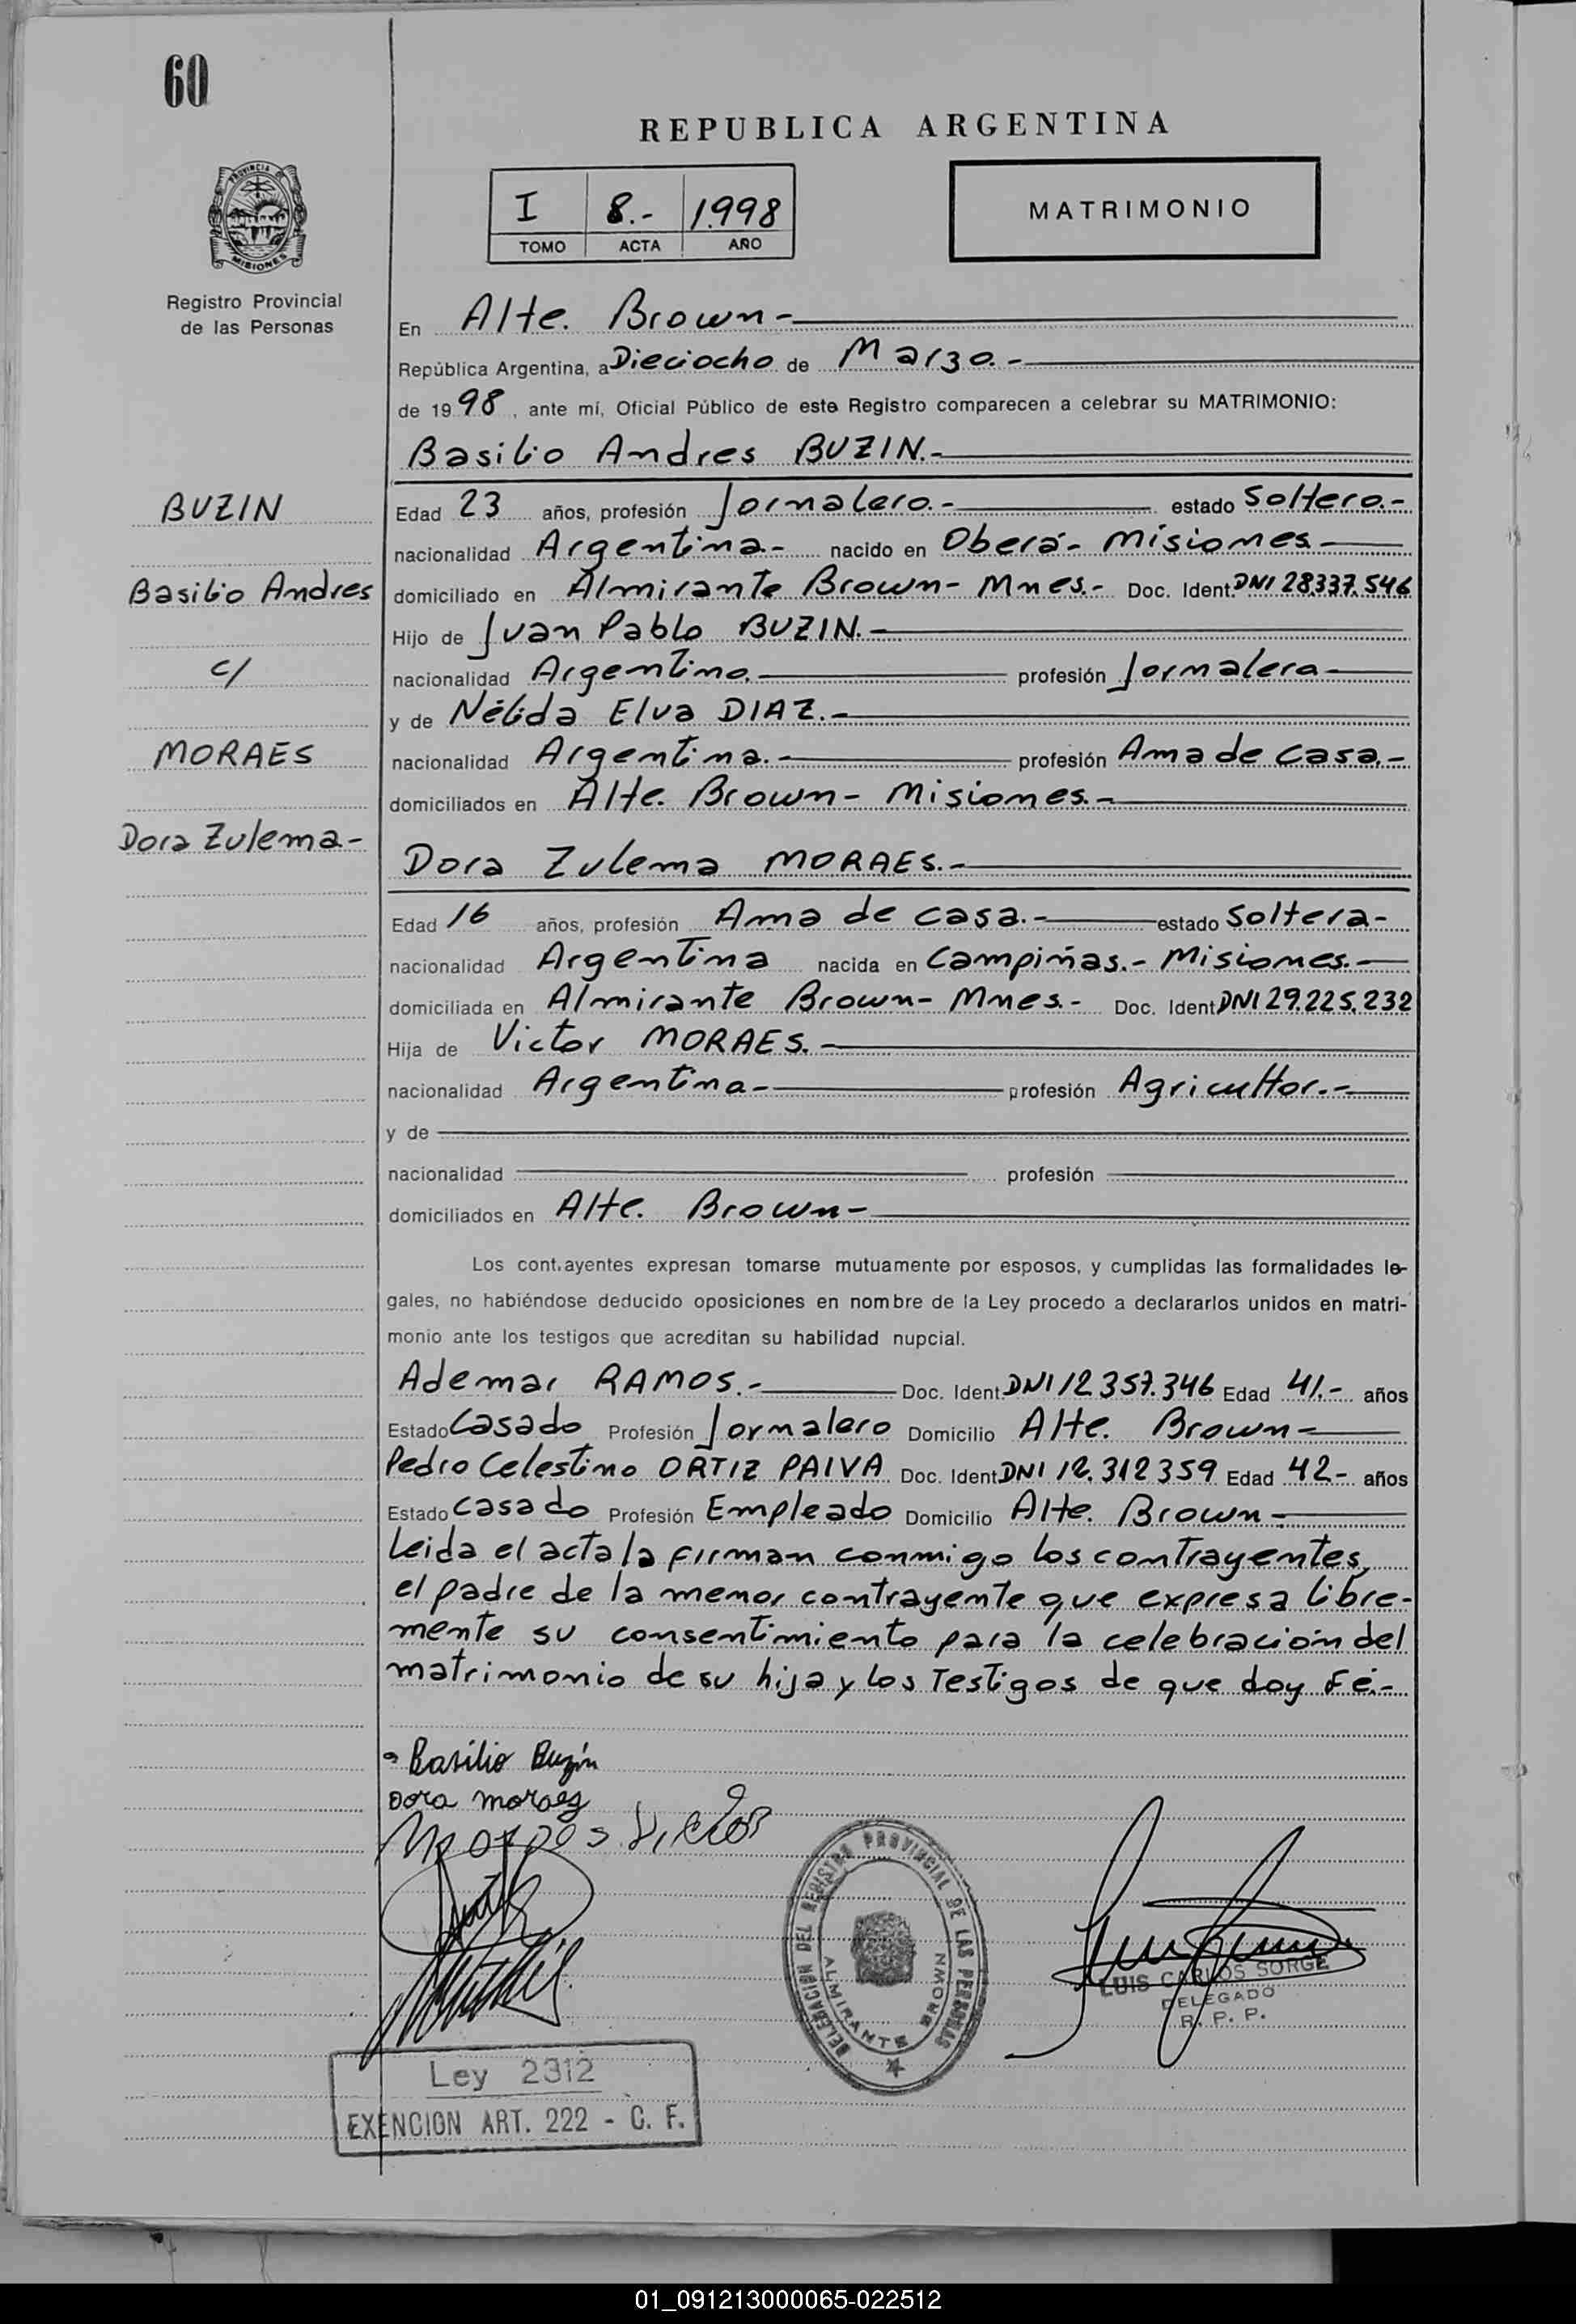 60
REPUBLICA ARGENTINA
I 8.- 1.998
TOMO ACTA AÑO
MATRIMONIO
PROVINCIA DE
MISIONES
Registro Provincial
de las Personas
En Alte. Brown-
República Argentina, a Dieciocho de Marzo.-
de 19 98, ante mí, Oficial Público de este Registro comparecen a celebrar su MATRIMONIO:
Basilio Andres BUZIN.-
BUZIN
Basilio Andres
c/
MORAES
Dora Zulema-
Edad 23 años, profesión Jornalero.- estado Soltero.-
nacionalidad Argentina.- nacido en Oberá- Misiones-
domiciliado en Almirante Brown- Mnes.- Doc. Ident. DNI 28.337.546
Hijo de Juan Pablo BUZIN.-
nacionalidad Argentino. profesión Jornalero-
y de Nélida Elva DIAZ.-
nacionalidad Argentina.- profesión Ama de casa.-
domiciliados en Alte. Brown- Misiones.-
Dora Zulema MORAES.-
Edad 16 años, profesión Ama de casa.- estado Soltera-
nacionalidad Argentina nacida en Campiñas.- Misiones.-
domiciliada en Almirante Brown- Mnes.- Doc. Ident. DNI 29.225.232
Hija de Victor MORAES.-
nacionalidad Argentina- profesión Agricultor.-
y de
nacionalidad profesión
domiciliados en Alte. Brown-
Los contrayentes expresan tomarse mutuamente por esposos, y cumplidas las formalidades le-
gales, no habiéndose deducido oposiciones en nombre de la Ley procedo a declararlos unidos en matri-
monio ante los testigos que acreditan su habilidad nupcial.
Ademar RAMOS.- Doc. Ident. DNI 12.357.346 Edad 41.- años
Estado Casado Profesión Jornalero Domicilio Alte. Brown-
Pedro Celestino ORTIZ PAIVA Doc. Ident. DNI 12.312.359 Edad 42- años
Estado Casado Profesión Empleado Domicilio Alte. Brown-
Leida el acta la firman conmigo los contrayentes,
el padre de la menor contrayente que expresa libre-
mente su consentimiento para la celebración del
matrimonio de su hija y los Testigos de que doy Fé.-
Basilio Buzin
Dora moraes
Moraes Victor
DELEGACION DEL REGISTRO PROVINCIAL DE LAS PERSONAS
ALMIRANTE BROWN
LUIS CARLOS SORGE
DELEGADO
R. P. P.
Ley 2312
EXENCION ART. 222 - C. F.
01_091213000065-022512